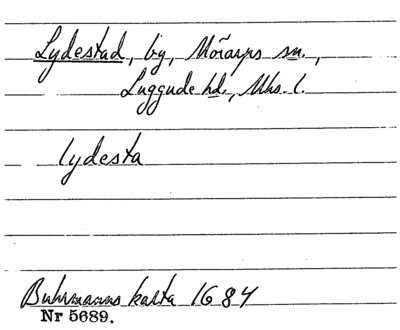 Lydestad, by, Mörarps sn.,
Luggude hd., Mhs. l.
lydesta
Buhrmanns karta 1684
Nr 5689.